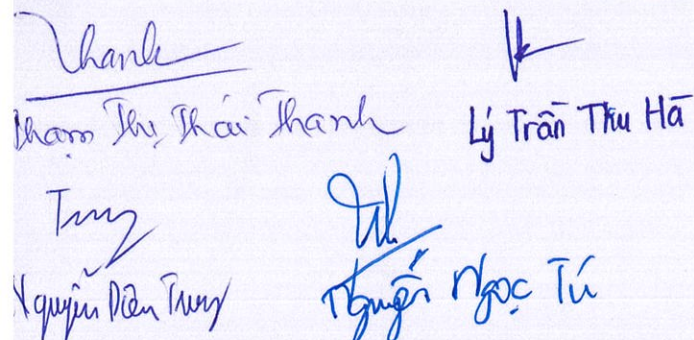 Thanh
Phạm Thị Thái Thanh
Lý Trần Thu Hà
Trung
Nguyễn Diên Trung
Nguyễn Ngọc Tú